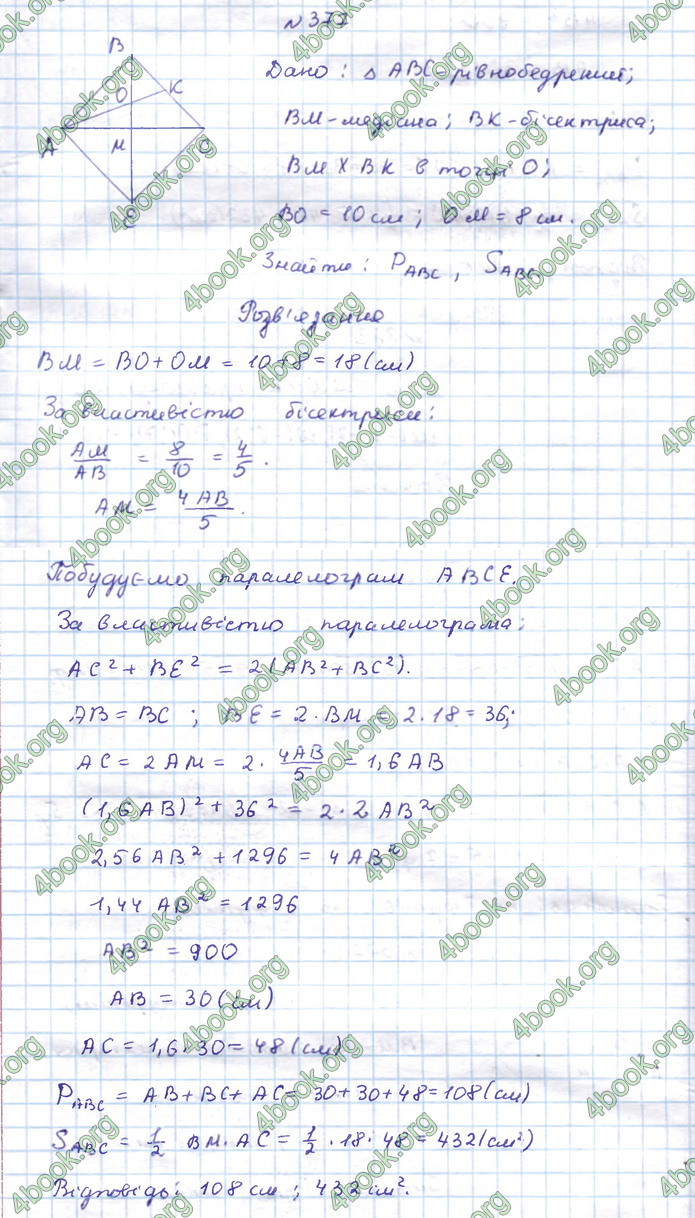 № 377
B
K
O
A
M
C
E
Дано: △ ABC - рівнобедрений;
BM - медіана; BK - бісектриса;
BM X BK в точці O;
BO = 10 см; OM = 8 см.
Знайти: P_ABC, S_ABC
Розв'язання
BM = BO + OM = 10 + 8 = 18 (см)
За властивістю бісектриси:
AM/AB = 8/10 = 4/5.
AM = 4AB/5.
Побудуємо паралелограм ABCE.
За властивістю паралелограма:
AC² + BE² = 2(AB² + BC²).
AB = BC; BE = 2·BM = 2·18 = 36;
AC = 2AM = 2·4AB/5 = 1,6 AB
(1,6AB)² + 36² = 2·2 AB²
2,56 AB² + 1296 = 4 AB²
1,44 AB² = 1296
AB² = 900
AB = 30 (см)
AC = 1,6·30 = 48 (см)
P_ABC = AB + BC + AC = 30 + 30 + 48 = 108 (см)
S_ABC = 1/2 BM·AC = 1/2·18·48 = 432 (см²)
Відповідь: 108 см; 432 см².
4book.org